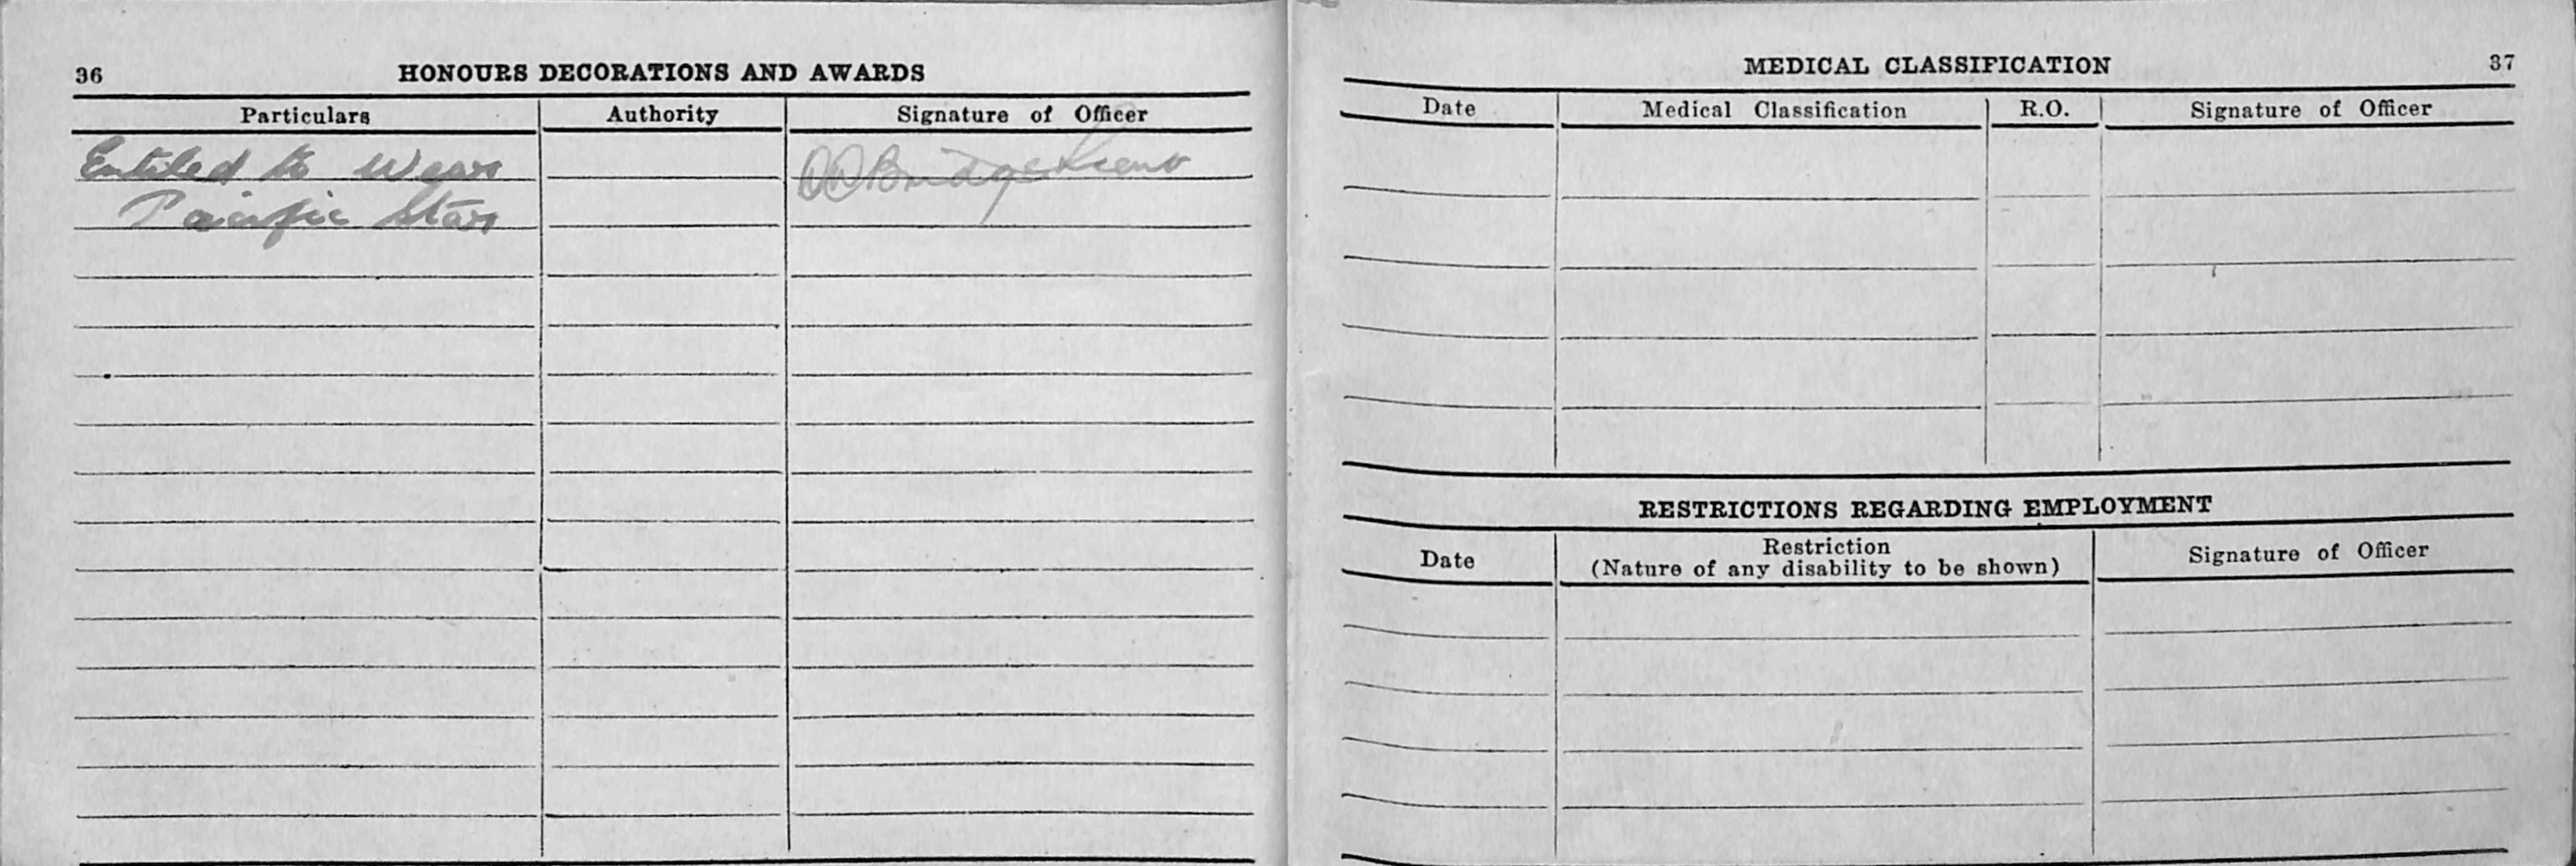 36 HONOURS DECORATIONS AND AWARDS
Particulars Authority Signature of Officer
Entitled to Wear
Pacific Star
MEDICAL CLASSIFICATION 37
Date Medical Classification R.O. Signature of Officer
RESTRICTIONS REGARDING EMPLOYMENT
Date Restriction Signature of Officer
(Nature of any disability to be shown)